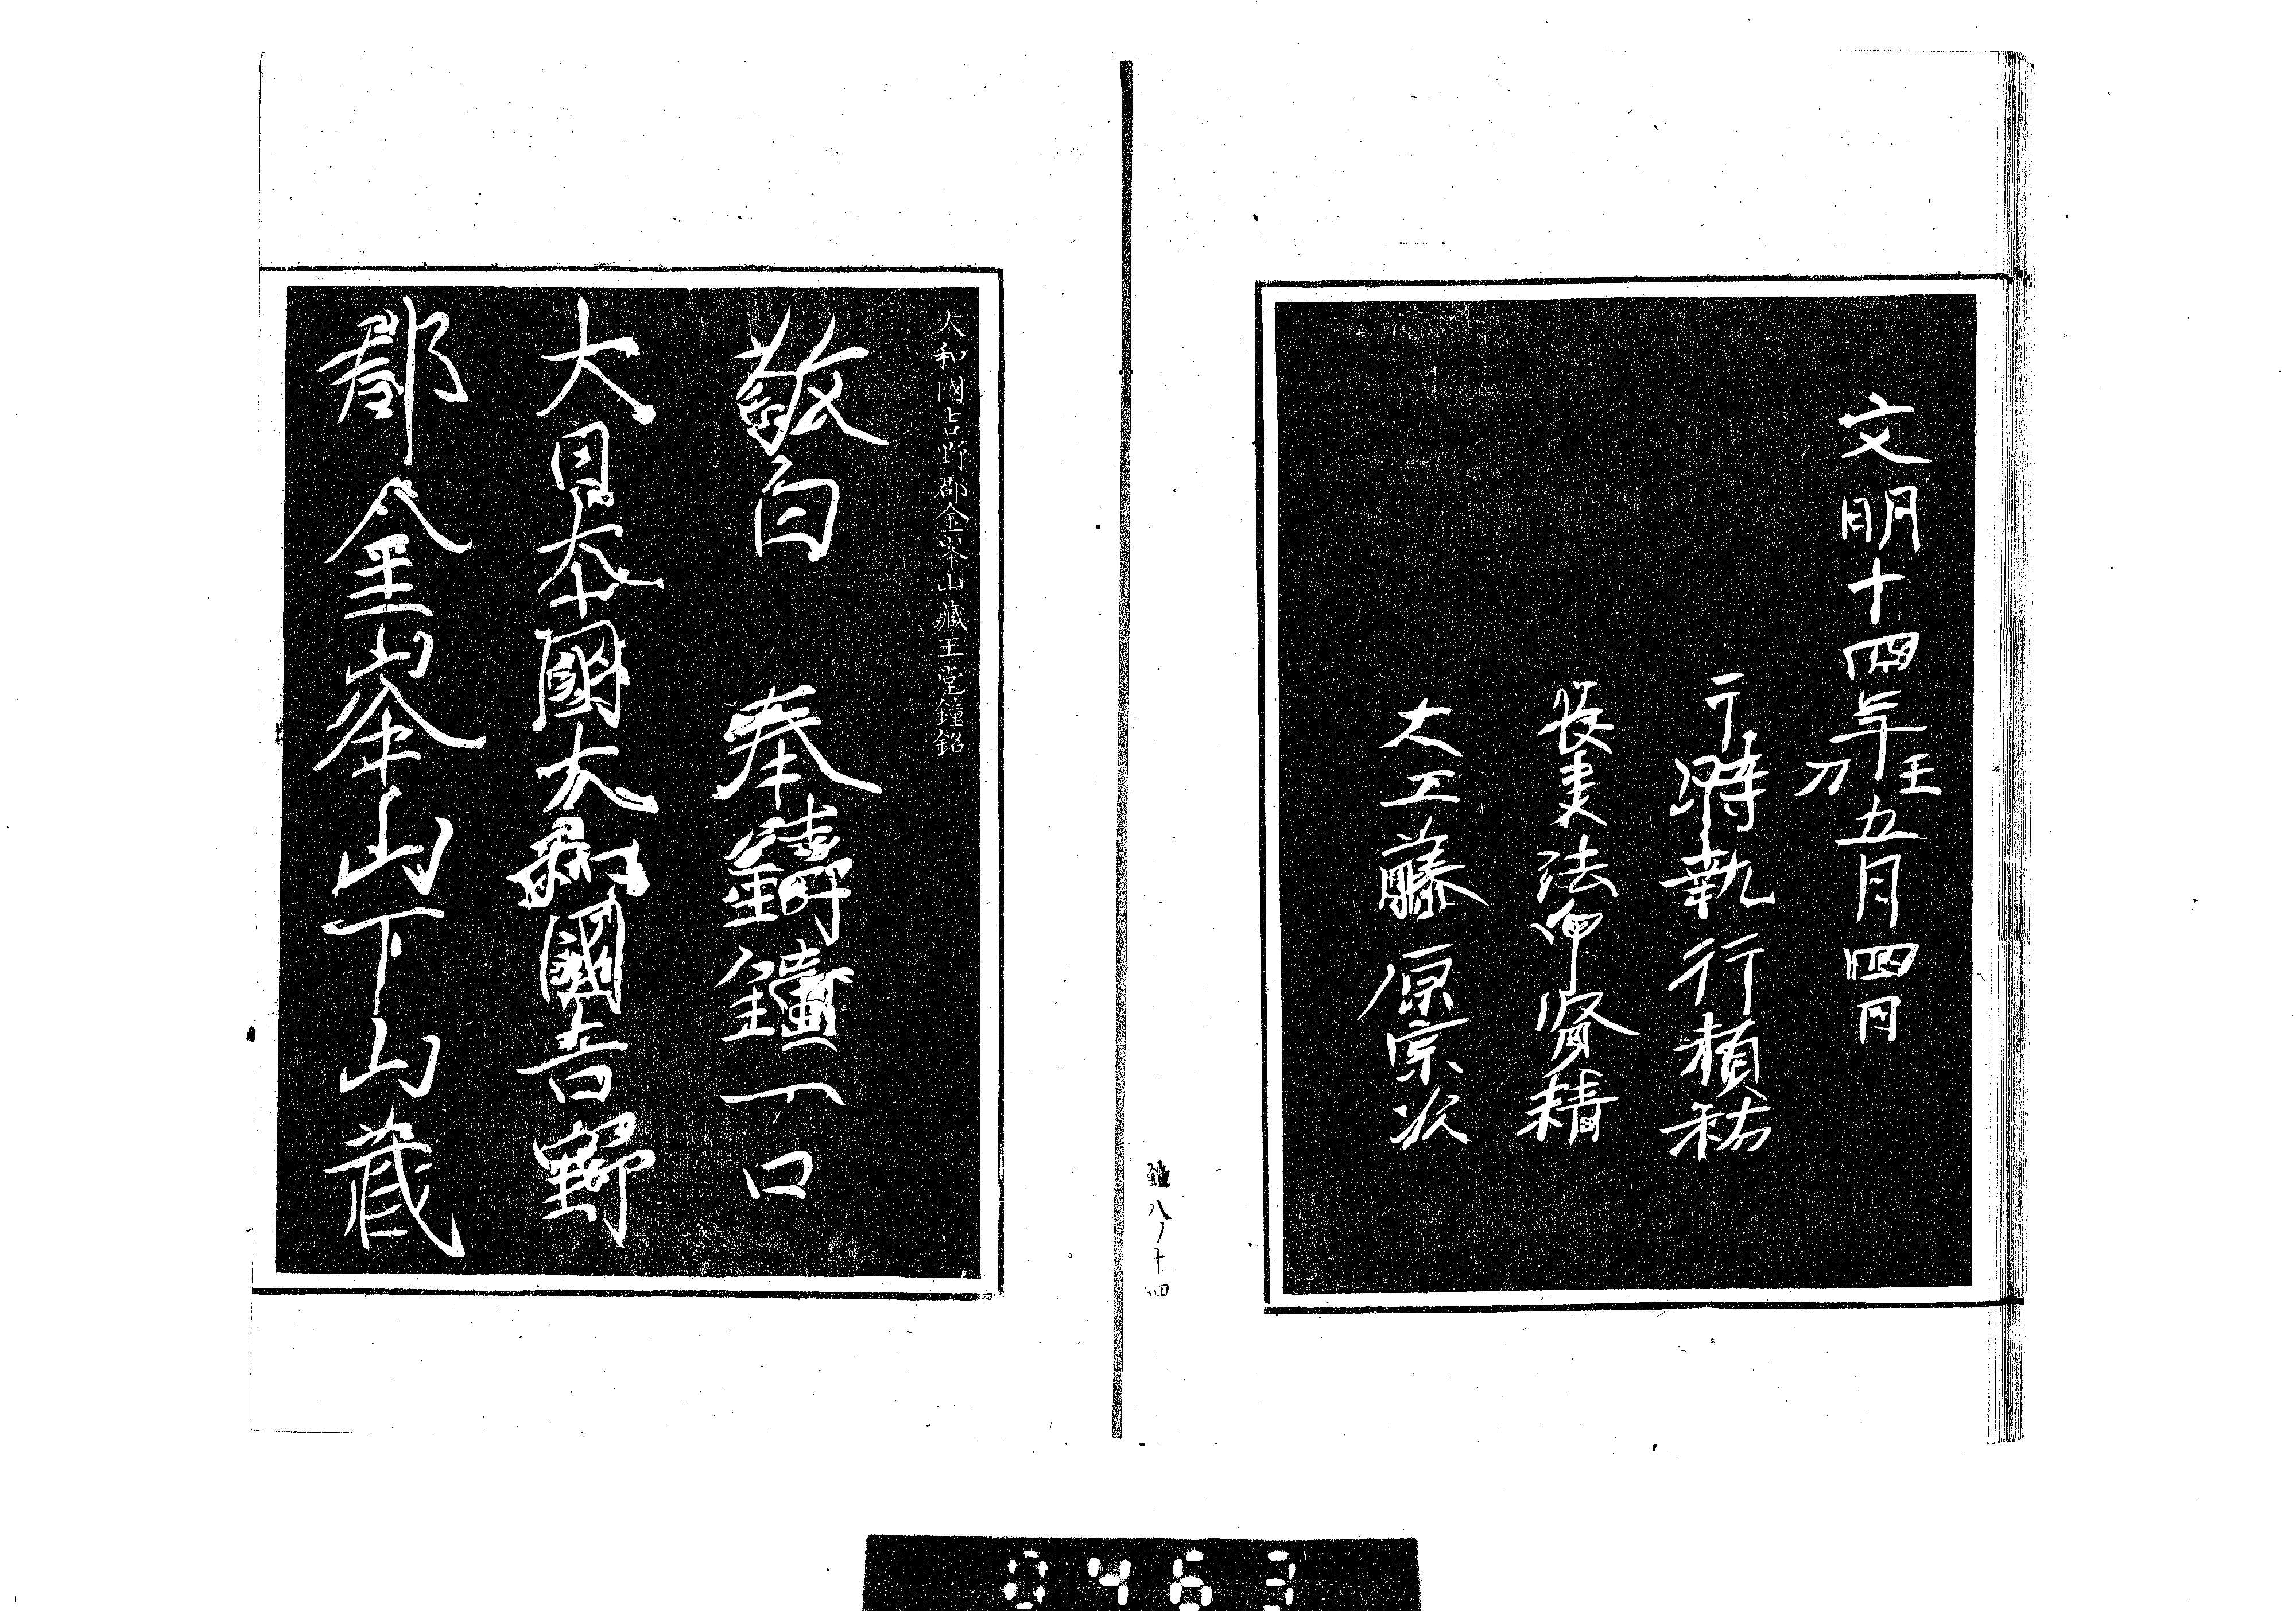 文明十四年壬刀五月四円
于時執行積祐
長吏法印賢精
大工藤原宗次
鐘八ノ十四
大和國吉野郡金峯山藏王堂鐘銘
敬白 奉鑄鐘一口
大日本國大和國吉野
郡金峯山下山蔵
0463